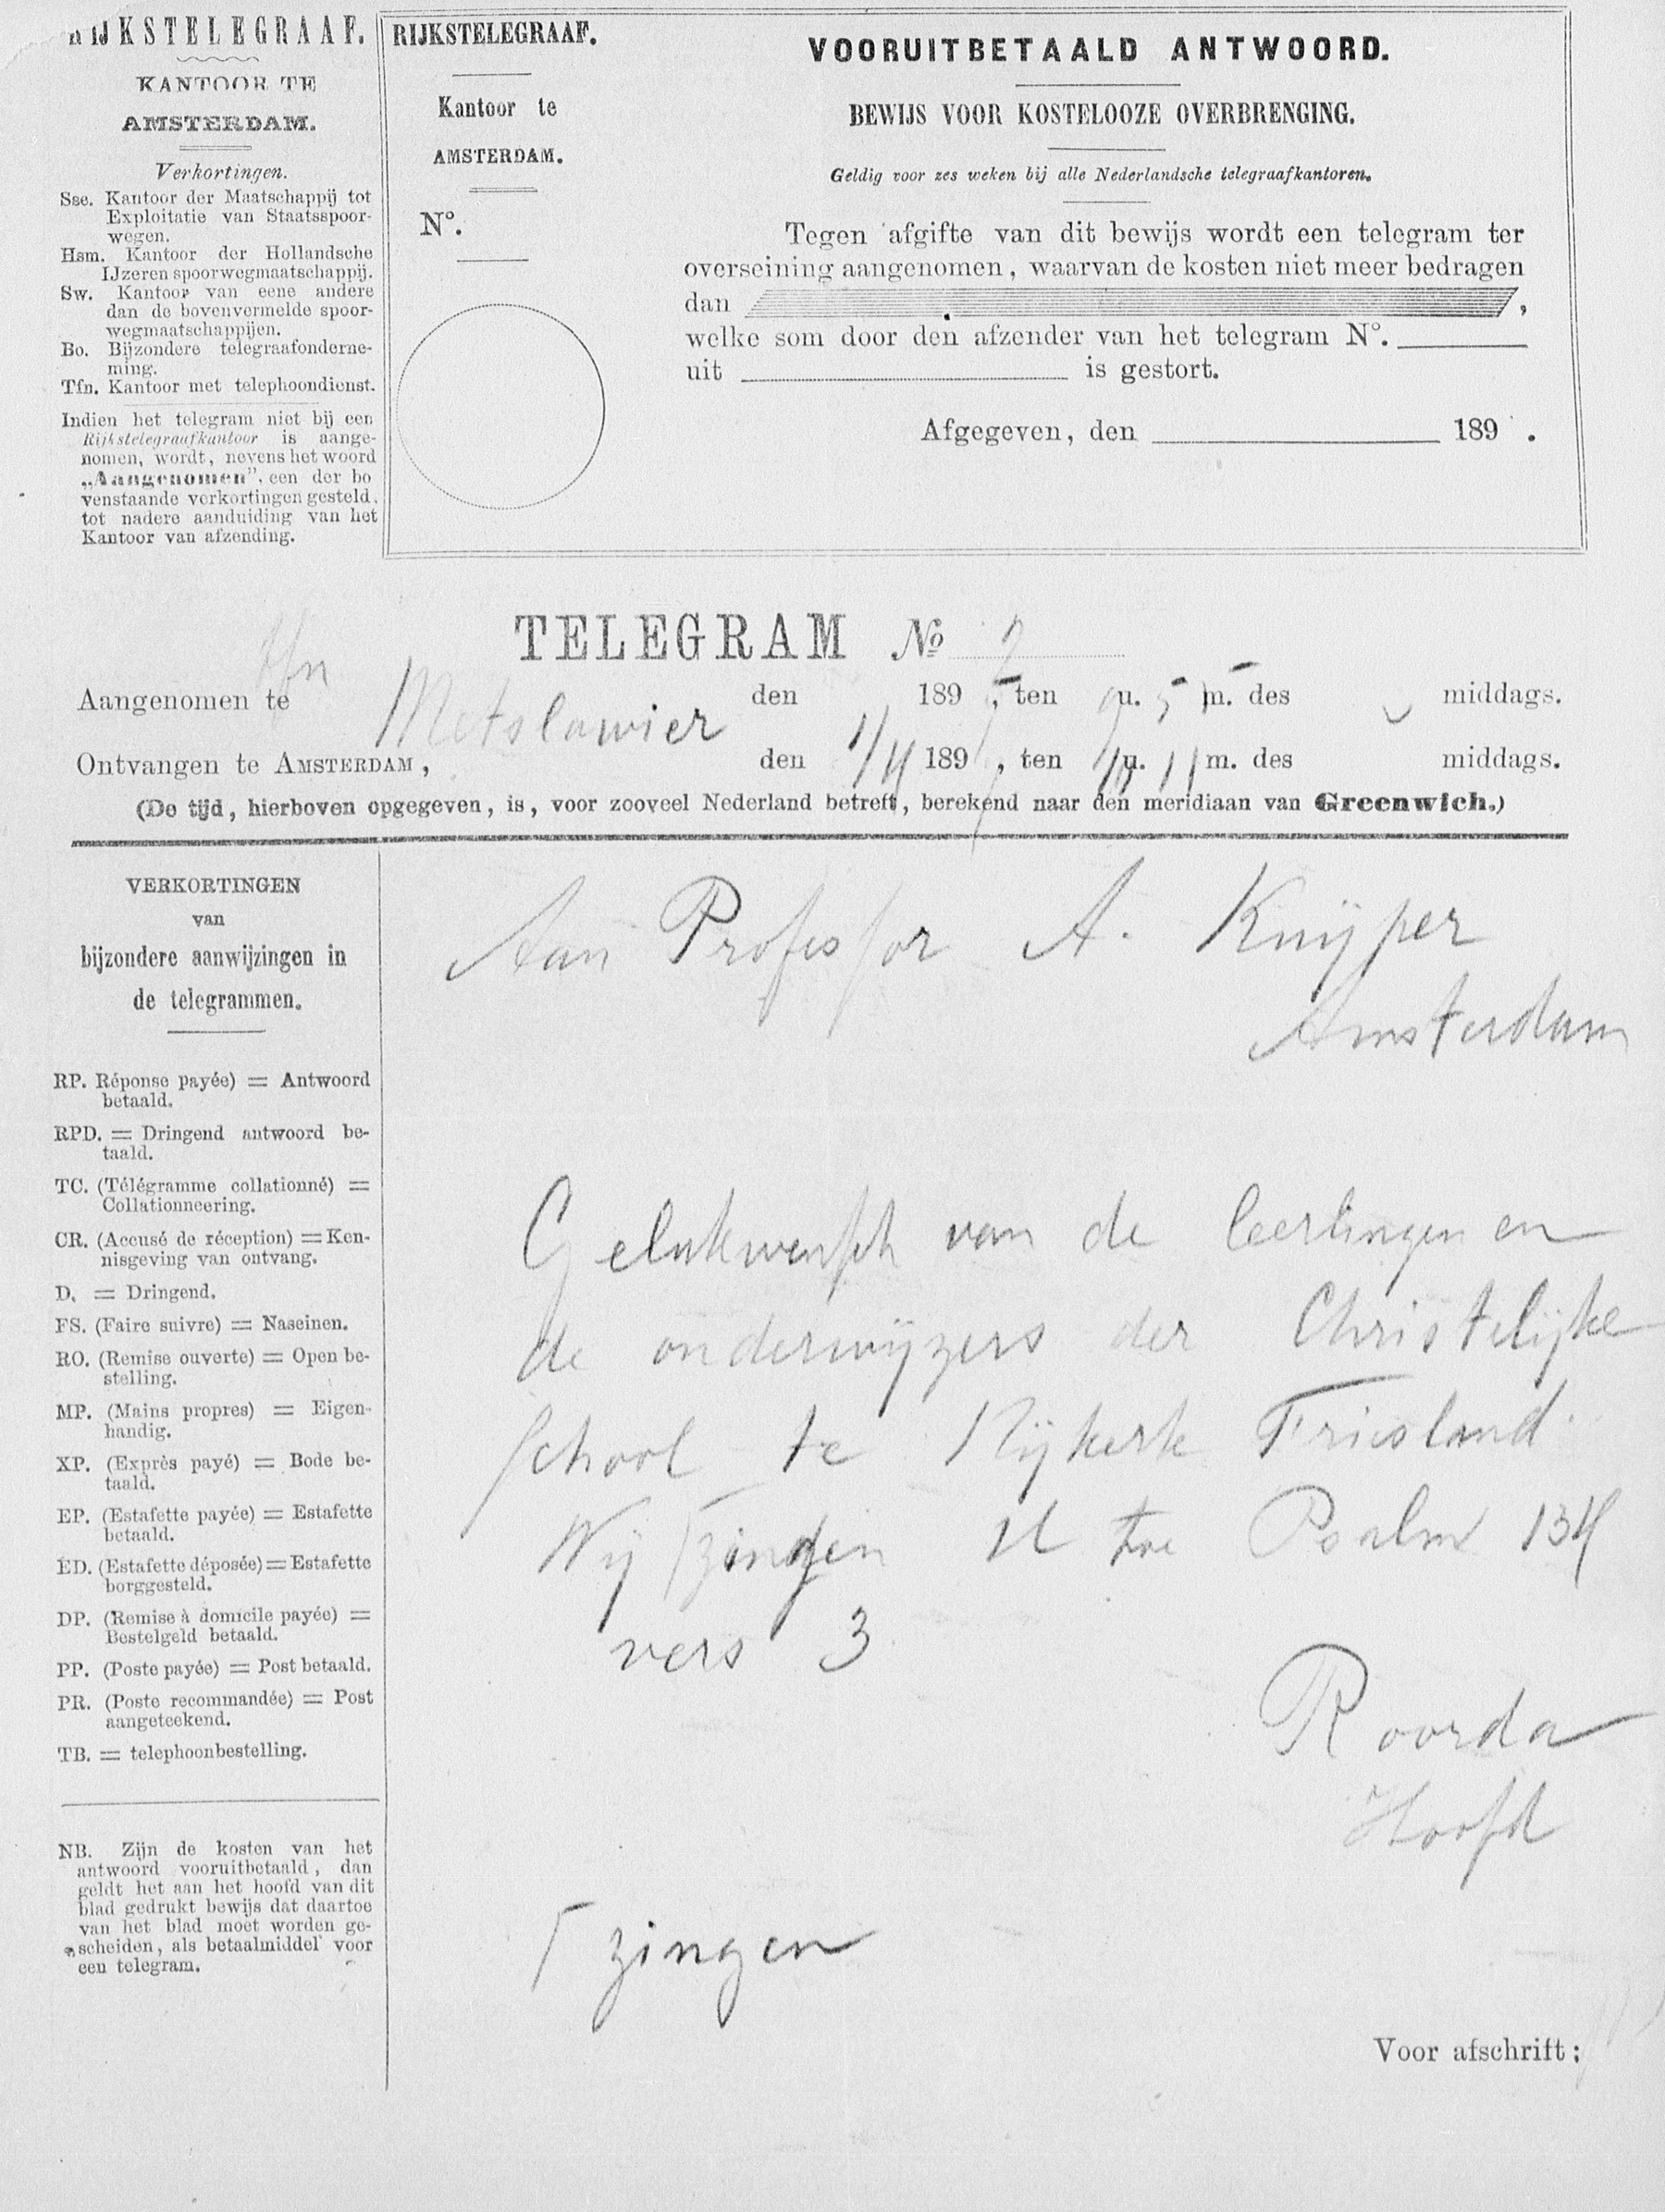 RIJKSTELEGRAAF.
KANTOOR TE
AMSTERDAM.
Verkortingen.
Sse. Kantoor der Maatschappij tot
Exploitatie van Staatsspoor-
wegen.
Hsm. Kantoor der Hollandsche
IJzeren spoorwegmaatschappij.
Sw. Kantoor van eene andere
dan de bovenvermelde spoor-
wegmaatschappijen.
Bo. Bijzondere telegraafonderne-
ming.
Tfn. Kantoor met telephoondienst.
Indien het telegram niet bij een
Rijkstelegraafkantoor is aange-
nomen, wordt, nevens het woord
„Aangenomen”, een der bo
venstaande verkortingen gesteld,
tot nadere aanduiding van het
Kantoor van afzending.
RIJKSTELEGRAAF.
Kantoor te
AMSTERDAM.
No.
VOORUITBETAALD ANTWOORD.
BEWIJS VOOR KOSTELOOZE OVERBRENGING.
Geldig voor zes weken bij alle Nederlandsche telegraafkantoren.
Tegen afgifte van dit bewijs wordt een telegram ter
overseining aangenomen, waarvan de kosten niet meer bedragen
dan ,
welke som door den afzender van het telegram No.
uit is gestort.
Afgegeven, den 189 .
TELEGRAM No
Tfn
Aangenomen te Metslawier den 189 , ten 9 u. 5 m. des v middags.
Ontvangen te AMSTERDAM, den 1/4 189 , ten u. 11 m. des middags.
(De tijd, hierboven opgegeven, is, voor zooveel Nederland betreft, berekend naar den meridiaan van Greenwich.)
VERKORTINGEN
van
bijzondere aanwijzingen in
de telegrammen.
RP. Réponse payée) = Antwoord
betaald.
RPD. = Dringend antwoord be-
taald.
TC. (Télégramme collationné) =
Collationneering.
CR. (Accusé de réception) = Ken-
nisgeving van ontvang.
D. = Dringend.
FS. (Faire suivre) = Naseinen.
RO. (Remise ouverte) = Open be-
stelling.
MP. (Mains propres) = Eigen-
handig.
XP. (Exprès payé) = Bode be-
taald.
EP. (Estafette payée) = Estafette
betaald.
ED. (Estafette déposée) = Estafette
borggesteld.
DP. (Remise à domicile payée) =
Bestelgeld betaald.
PP. (Poste payée) = Post betaald.
PR. (Poste recommandée) = Post
aangeteekend.
TB. = telephoonbestelling.
NB. Zijn de kosten van het
antwoord vooruitbetaald, dan
geldt het aan het hoofd van dit
blad gedrukt bewijs dat daartoe
van het blad moet worden ge-
scheiden, als betaalmiddel voor
een telegram.
Aan Professor A. Kuyper
Amsterdam
Gelukwensch van de leerlingen en
de onderwijzers der Christelijke
school te Nijkerk Friesland.
Wij zingen U toe Psalm 134
vers 3
Roorda
Hoofd
zingen
Voor afschrift;